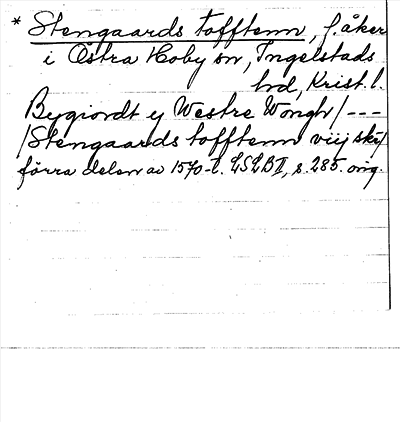 * Stengaards tofftenn, f. åker
i Östra Hoby sn, Ingelstads
hd, Krist. l.
Bygiordt y Westre Wongh /---
/Stengaards tofftenn viij ski/
förra delen av 1570-t. LSLB II, s. 285. orig.